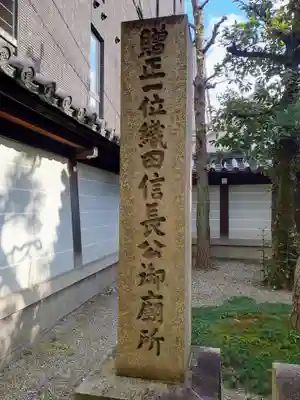 贈正一位織田信長公御廟所